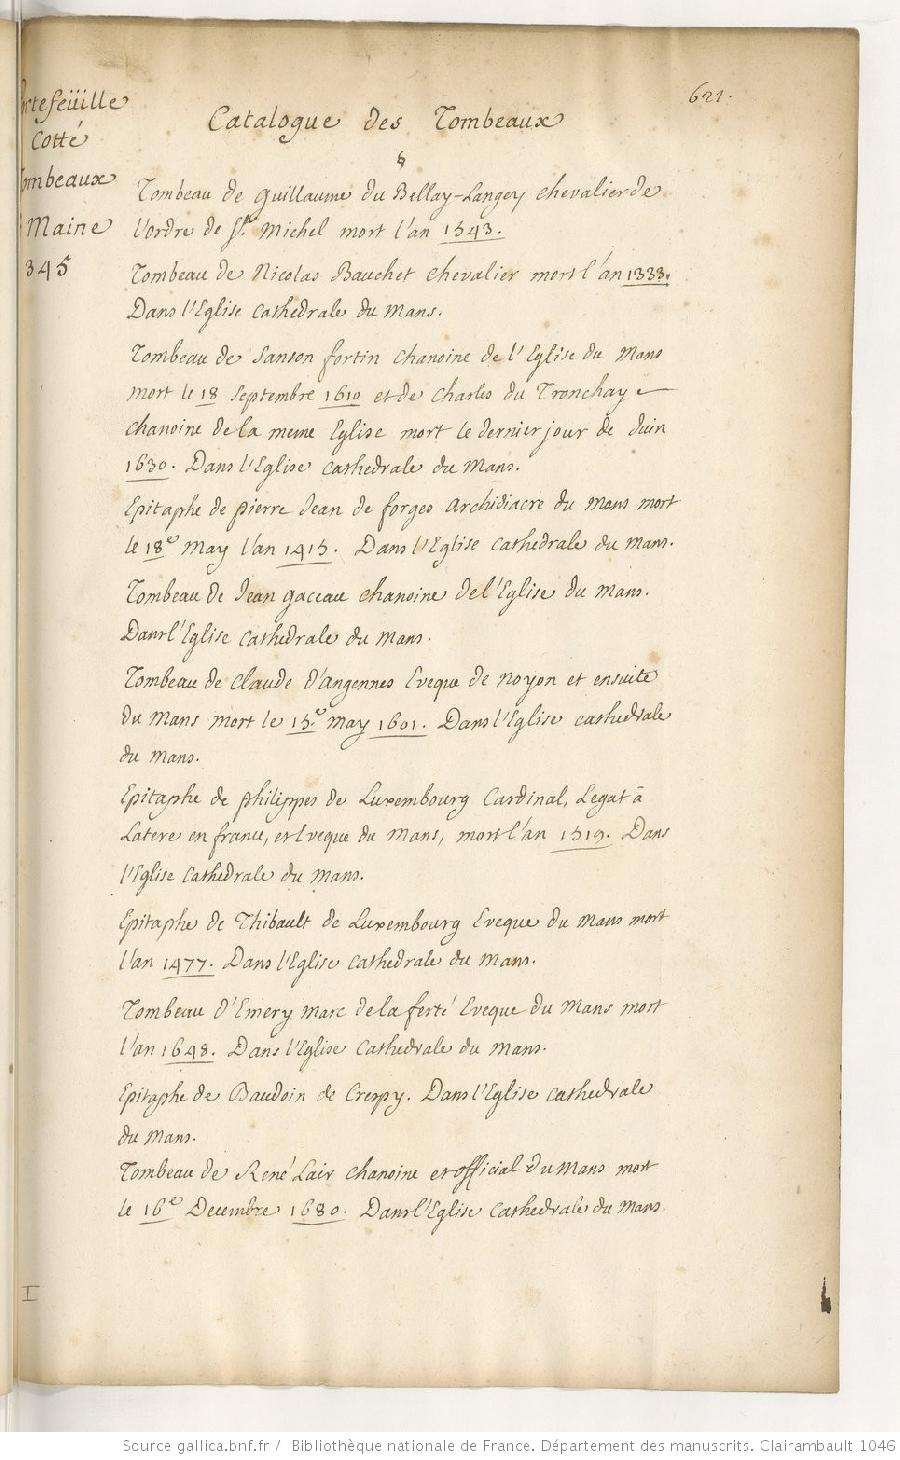 621.
rtefeüille
Cotté
ombeaux
Maine
345
Catalogue des Tombeaux
Tombeau de Guillaume du Bellay-Langey chevalier de
l'ordre de St. Michel mort l'an 1543.
Tombeau de Nicolas Bauchet chevalier mort l'an 1333.
Dans l'Eglise cathedrale du Mans.
Tombeau de Sanson fortin chanoine de l'Eglise du Mans
mort le 18 Septembre 1610 et de Charles du Tronchay
chanoine de la meme Eglise mort le dernier jour de Juin
1630. Dans l'Eglise cathedrale du Mans.
Epitaphe de pierre Jean de forges Archidiacre du Mans mort
le 18e May l'an 1415. Dans l'Eglise cathedrale du Mans.
Tombeau de Jean gaceau chanoine de l'Eglise du Mans.
Dans l'Eglise cathedrale du Mans.
Tombeau de Claude d'angennes Eveque de noyon et ensuite
du Mans mort le 15e May 1601. Dans l'Eglise cathedrale
du Mans.
Epitaphe de philippes de Luxembourg Cardinal, Legat à
Latere en france, et Eveque du Mans, mort l'an 1519. Dans
l'Eglise cathedrale du Mans.
Epitaphe de Thibault de Luxembourg Eveque du Mans mort
l'an 1477. Dans l'Eglise cathedrale du Mans.
Tombeau d'Emery Marc de la ferté Eveque du Mans mort
l'an 1648. Dans l'Eglise Cathedrale du Mans.
Epitaphe de Baudoin de Crespy. Dans l'Eglise cathedrale
du Mans.
Tombeau de René Lair chanoine et official du Mans mort
le 16e Decembre 1680. Dans l'Eglise Cathedrale du Mans.
I
Source gallica.bnf.fr / Bibliothèque nationale de France. Département des manuscrits. Clairambault 1046